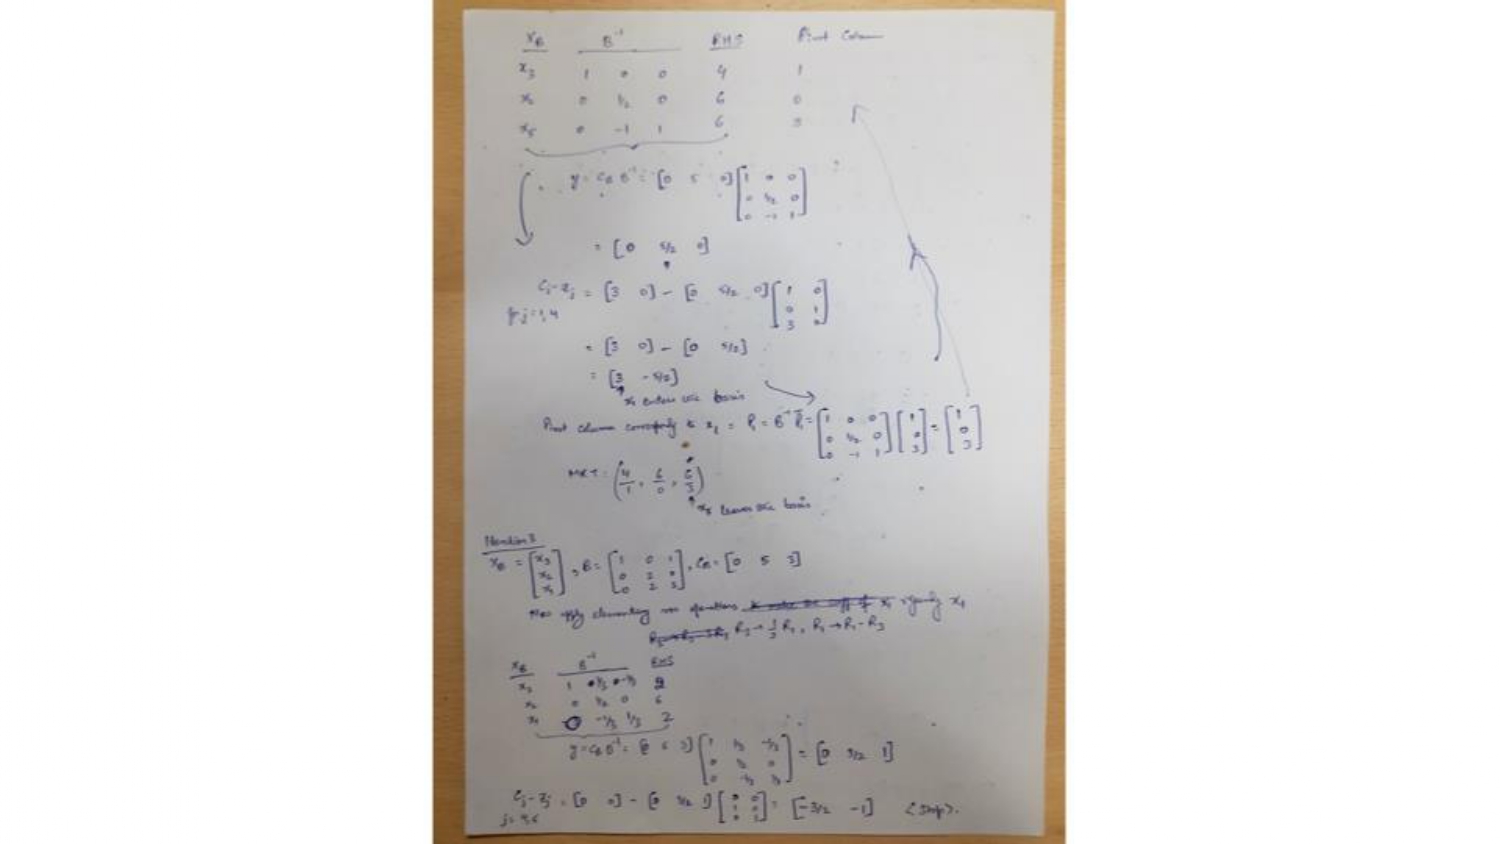 X_B B⁻¹ RHS Pivot Column
x₃ 1 0 0 4 1
x₂ 0 1/2 0 6 0
x₅ 0 -1 1 6 3
y = C_B B⁻¹ = [0 5 0] [1 0 0
0 1/2 0
0 -1 1]
= [0 5/2 0]
C_j - Z_j = [3 0] - [0 5/2 0] [1 0
for j=1,4 0 1
3 0]
= [3 0] - [0 5/2]
= [3 -5/2]
x₁ enters the basis
Pivot column to x₁ = P₁ = B⁻¹ P₁ = [1 0 0 [1 = [1
0 1/2 0 0 0
0 -1 1] 3] 3]
MRT: (4/1, 6/0, 6/3)
x₅ leaves the basis
Iteration 3
X_B = [x₃ x₂ x₁], B = [1 0 1, C_B = [0 5 3]
0 2 0
0 2 3]
Now apply elementary row operations x₁
R₃ → 1/3 R₃, R₁ → R₁ - R₃
X_B B⁻¹ RHS
x₃ 1 1/3 -1/3 2
x₂ 0 1/2 0 6
x₁ 0 -1/3 1/3 2
y = C_B B⁻¹ = [0 5 3] [1 1/3 -1/3 = [0 3/2 1]
0 1/2 0
0 -1/3 1/3]
C_j - Z_j = [0 0] - [0 3/2 1] [0 0 = [-3/2 -1] <Stop>.
j=4,5 1 0
0 1]